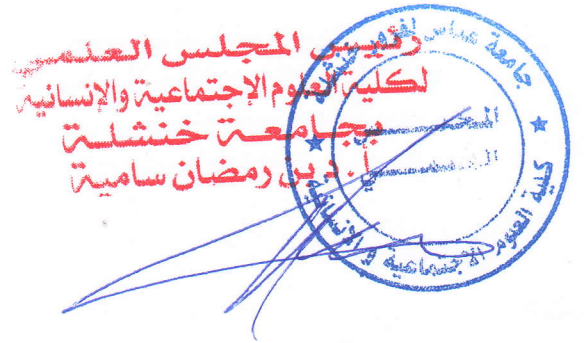 رئيس المجلس العلمي
لكلية العلوم الإجتماعية والإنسانية
بجامعة خنشلة
أ. د بن رمضان سامية
جامعة عباس لغرور خنشلة
المجلس
كلية العلوم الاجتماعية و الإنسانية